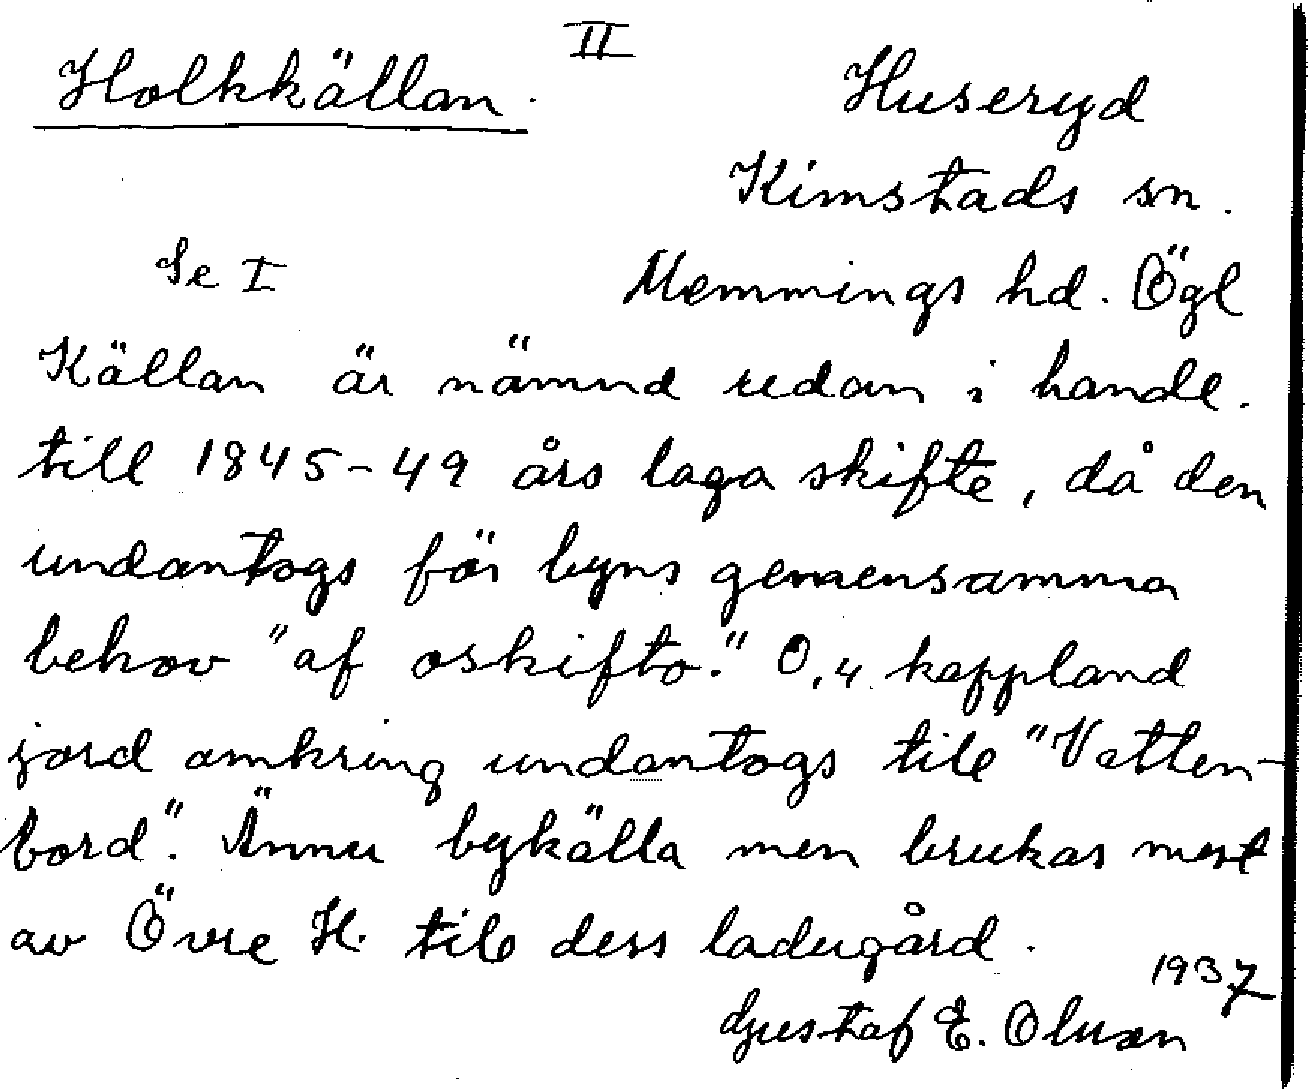 II
Holkkällan.
Huseryd
Kimstads sn.
Se I
Memmings hd. Ögl
Källan är nämnd redan i handl.
till 1845-49 års laga skifte, då den
undantogs för byns gemensamma
behov "af oskifto." 0,4 kappland
jord omkring undantogs till "Vatten-
bord". Ännu bykälla men brukas mest
av Övre H. till dess ladugård.
1937
Gustaf E. Olsson